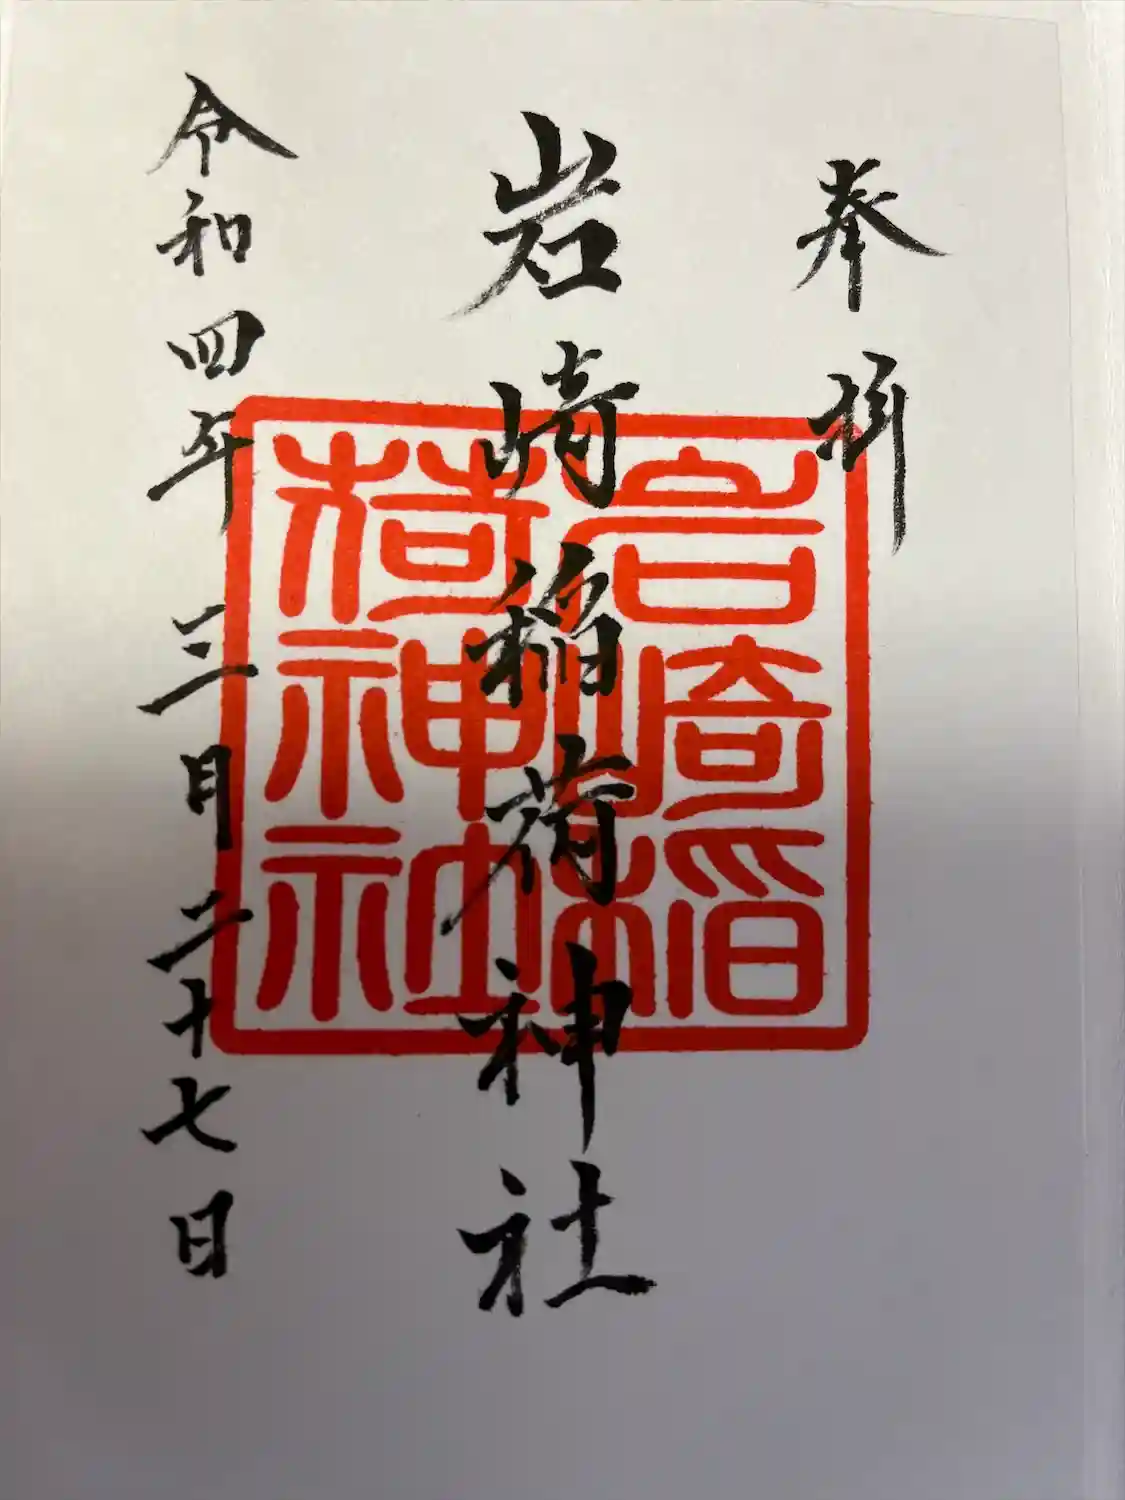 奉拝
岩崎稲荷神社
令和四年三月二十七日
岩崎稲
荷神社